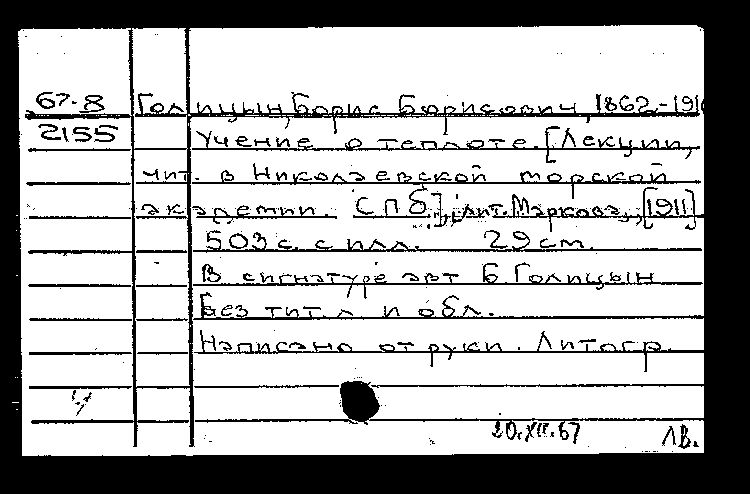 67-8 Голицын, Борис Борисович, 1862-191
2155 Учение о теплоте. [Лекции,
чит. в Николаевской морской
академии. СПб], лит. Маркова, [1911]
503 с. с илл. 29 см.
В сигнатуре авт Б. Голицын
Без тит. л и обл.
Написано от руки. Литогр.
20.XII.67 ЛВ.